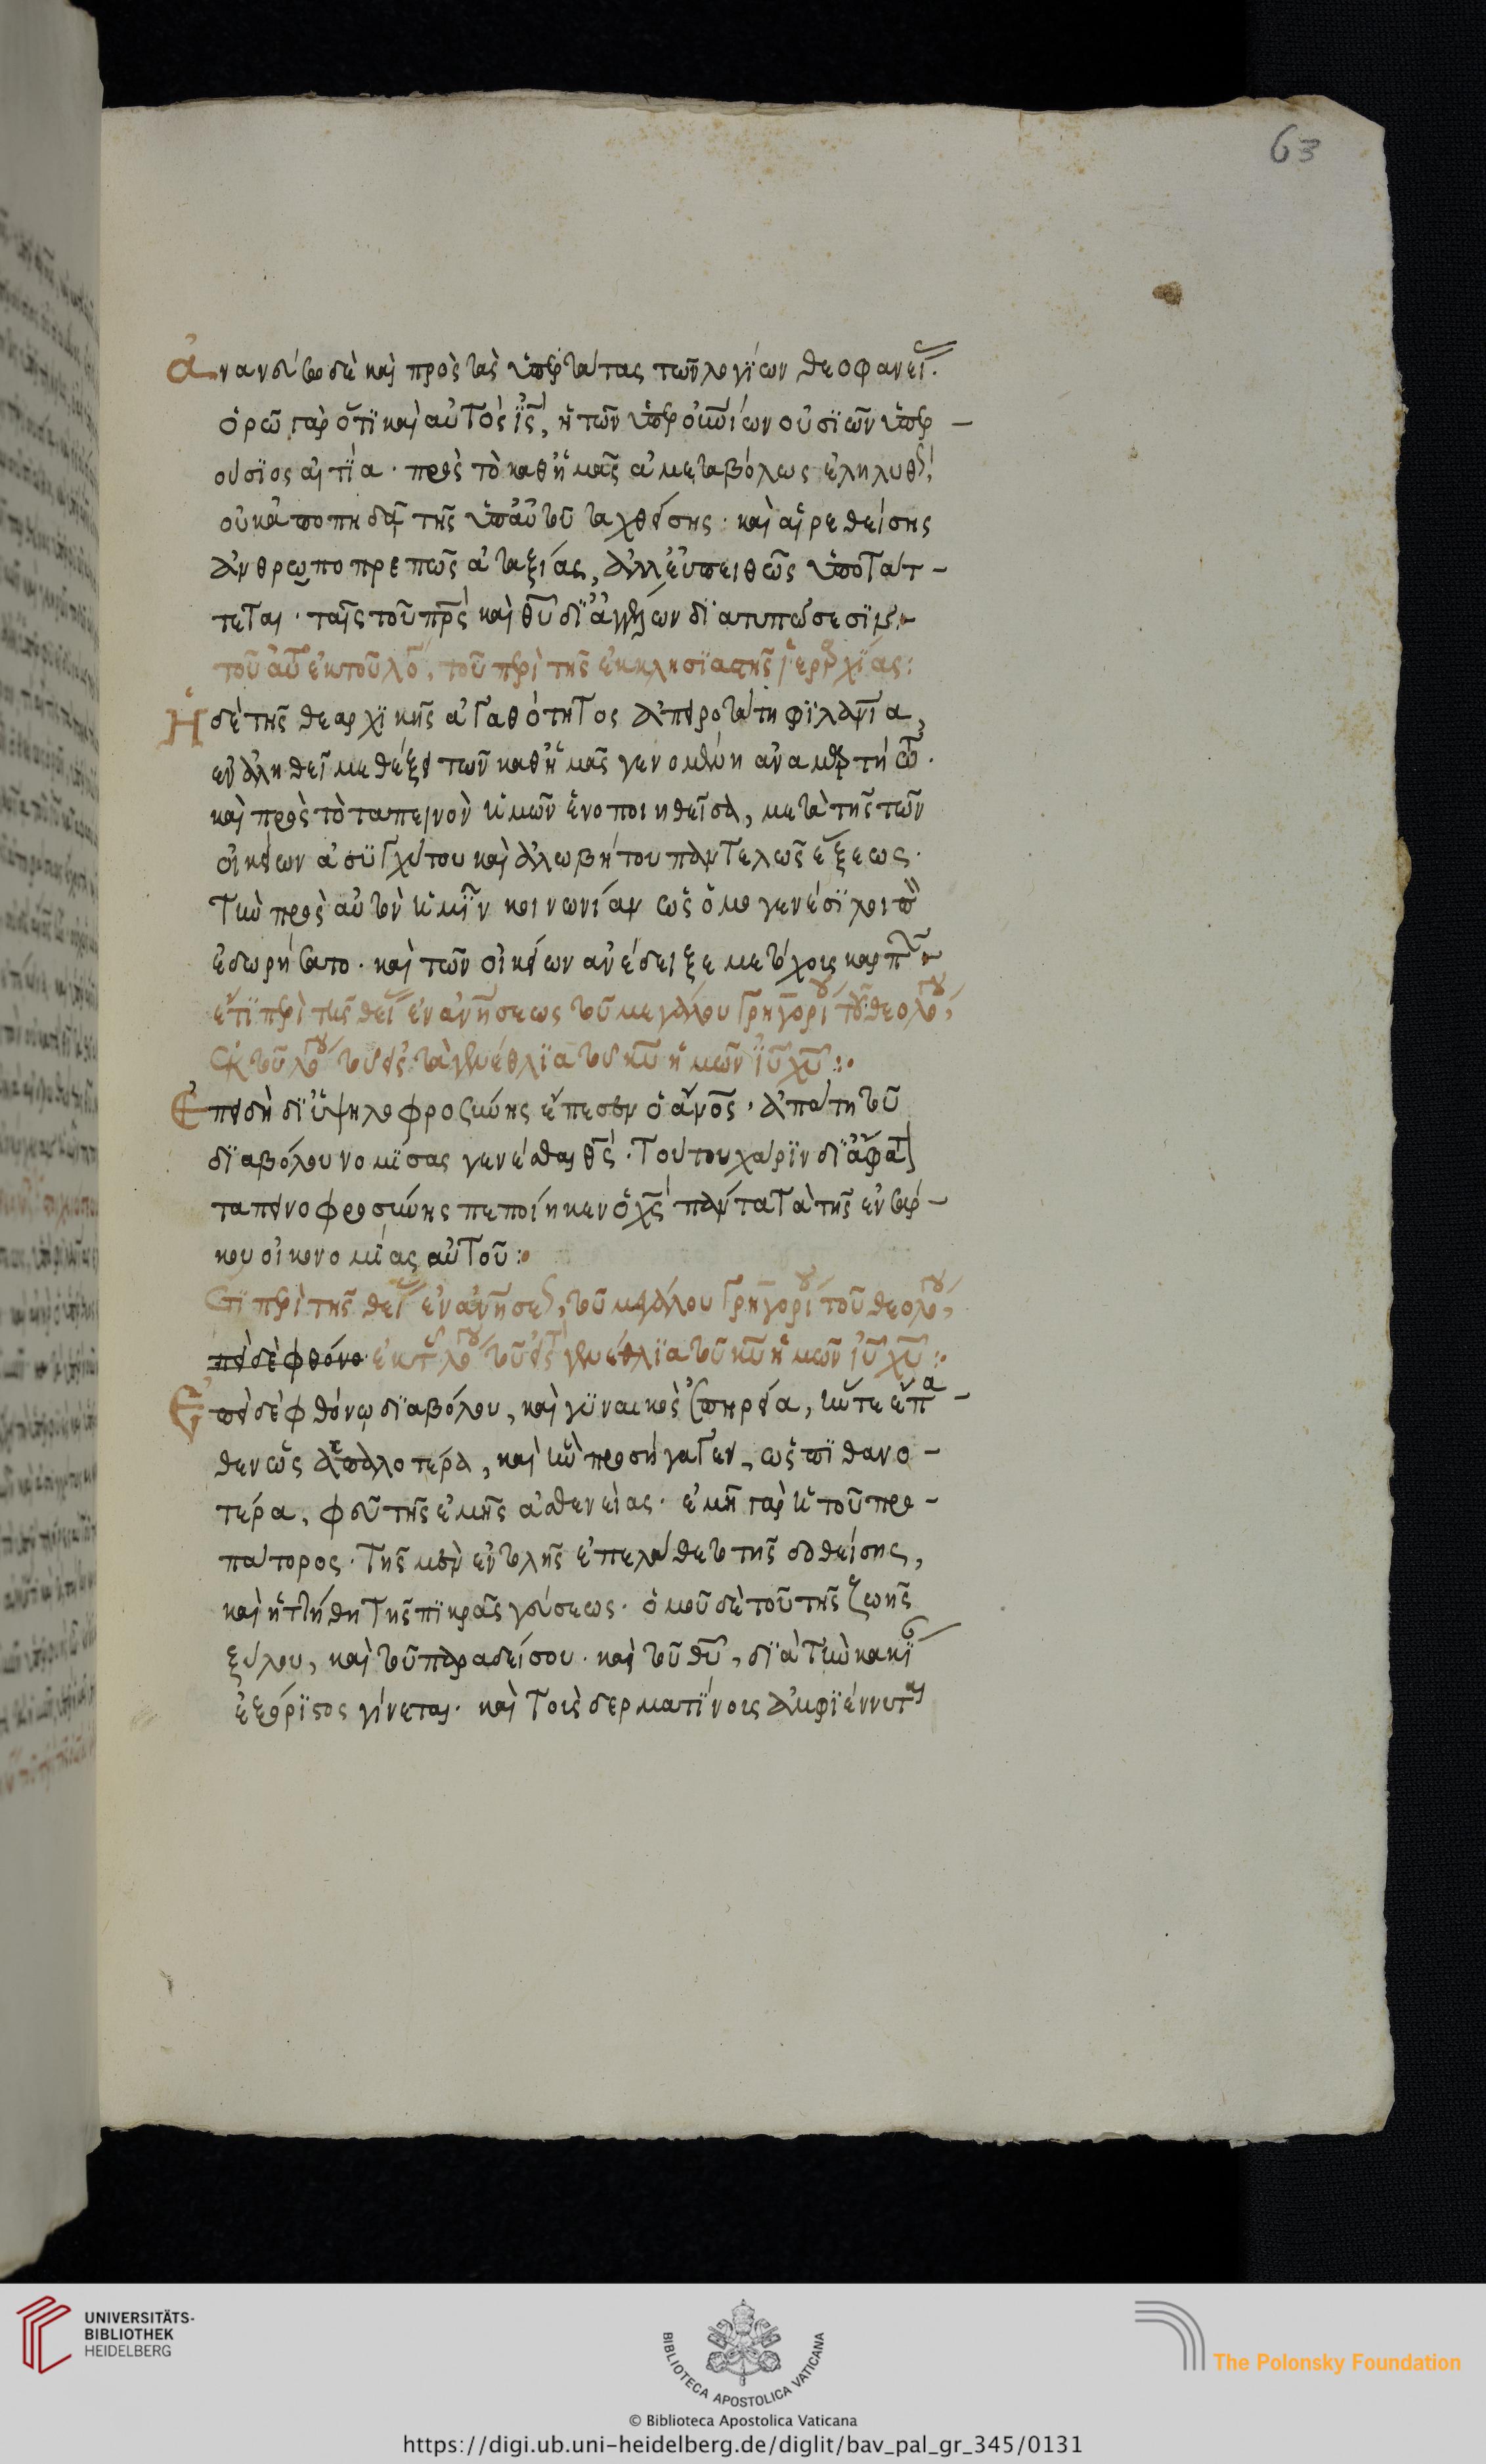 63
ἀναντίβω δὲ καὶ πρὸς τὰς ὑπερτάτας τῶν λογίων θεοφανεί.
ὁρῶ γὰρ ὅτι καὶ αὐτὸς ις, ἡ τῶν ὑπερουνίων οὐσιῶν ὑπερ-
ούσιος αἰτία · πρὸς τὸ καθ ἡμᾶς ἀμεταβόλως ἐληλυθ,
οὐκ ἀποπηδᾷ τῆς ὑπ αὐτοῦ ταχθείσης · καὶ αἱρεθείσης
ἀνθρωποπρεπῶς εὐταξίας, ἀλλ εὐπειθῶς ὑποτάτ-
τεται · ταῖς τοῦ πρς καὶ θυ δι ἀγγέλων διατυπώσεσιν
τοῦ αὐ ἐκ τοῦ λο, τοῦ περὶ τῆς ἐκκλησιαστῆς ἱεραρχίας:
Ἡ δὲ τῆς θεαρχικῆς ἀγαθότητος ἀπειροτάτη φιλανία,
ἐν ἀληθεῖ μεθέξει τῶν καθ ἡμᾶς γενομένη ἀναμαρτήτω.
καὶ πρὸς τὸ ταπεινὸν ἡμῶν ἑνοποιηθεῖσα, μετὰ τῆς τῶν
οἰκείων ἀσυγχύτου καὶ ἀλωβήτου παντελῶς ἕξεως.
τὴν πρὸς αὐτὴν ἡμῖν κοινωνίαν ὡς ὁμογενέσι λοιπὸν
ἐδωρήσατο · καὶ τῶν οἰκείων ἀνέδειξε μετόχους
ἔτι περὶ τῆς θεί ἐνανήσεως τοῦ μεγάλου γρηγορίου τοῦ θεολόγου,
ἐκ τοῦ λόγου τοῦ εἰς τὰ γενέθλια τοῦ κυ ἡμῶν ιυ χυ:
Ἐπειδὴ δι ὑψηλοφροσύνης ἔπεσεν ὁ ἄνος, ἀπάτη τοῦ
διαβόλου νομίσας γενέσθαι θς · τούτου χάριν δι ἄφατον
ταπεινοφροσύνης πεποίηκεν ὁ χς πάντα τὰ τῆς ἐνσάρ-
κου οἰκονομίας αὐτοῦ:
ἔτι περὶ τῆς θεί ἐνανήσε, τοῦ μεγάλου γρηγορίου τοῦ θεολόγου,
πεὶ δὲ φθόνο ἐκ τοῦ λόγου τοῦ εἰς γενέθλια τοῦ κυ ἡμῶν ιυ χυ:
Ἐπεὶ δὲ φθόνῳ διαβόλου, καὶ γυναικὸς ἐπηρεία, ἥν τε ἔπα-
θεν ὡς ἁπαλοτέρα, καὶ ἣν προσήγαγεν, ὡς πιθανο-
τέρα, φεῦ τῆς ἐμῆς ἀσθενείας · ἐμὴ γὰρ ἡ τοῦ προ-
πάτορος · τῆς μὲν ἐντολῆς ἐπελάθετο τῆς δοθείσης,
καὶ ἡττήθη τῆς πικρᾶς γεύσεως · ὁμοῦ δὲ τοῦ τῆς ζωῆς
ξύλου, καὶ τοῦ παραδείσου · καὶ τοῦ θυ, διὰ τὴν κακί
ἐξόριστος γίνεται · καὶ τοὺς δερματίνους ἀμφιέννυται
UNIVERSITÄTS-
BIBLIOTHEK
HEIDELBERG
BIBLIOTECA APOSTOLICA VATICANA
The Polonsky Foundation
© Biblioteca Apostolica Vaticana
https://digi.ub.uni-heidelberg.de/diglit/bav_pal_gr_345/0131